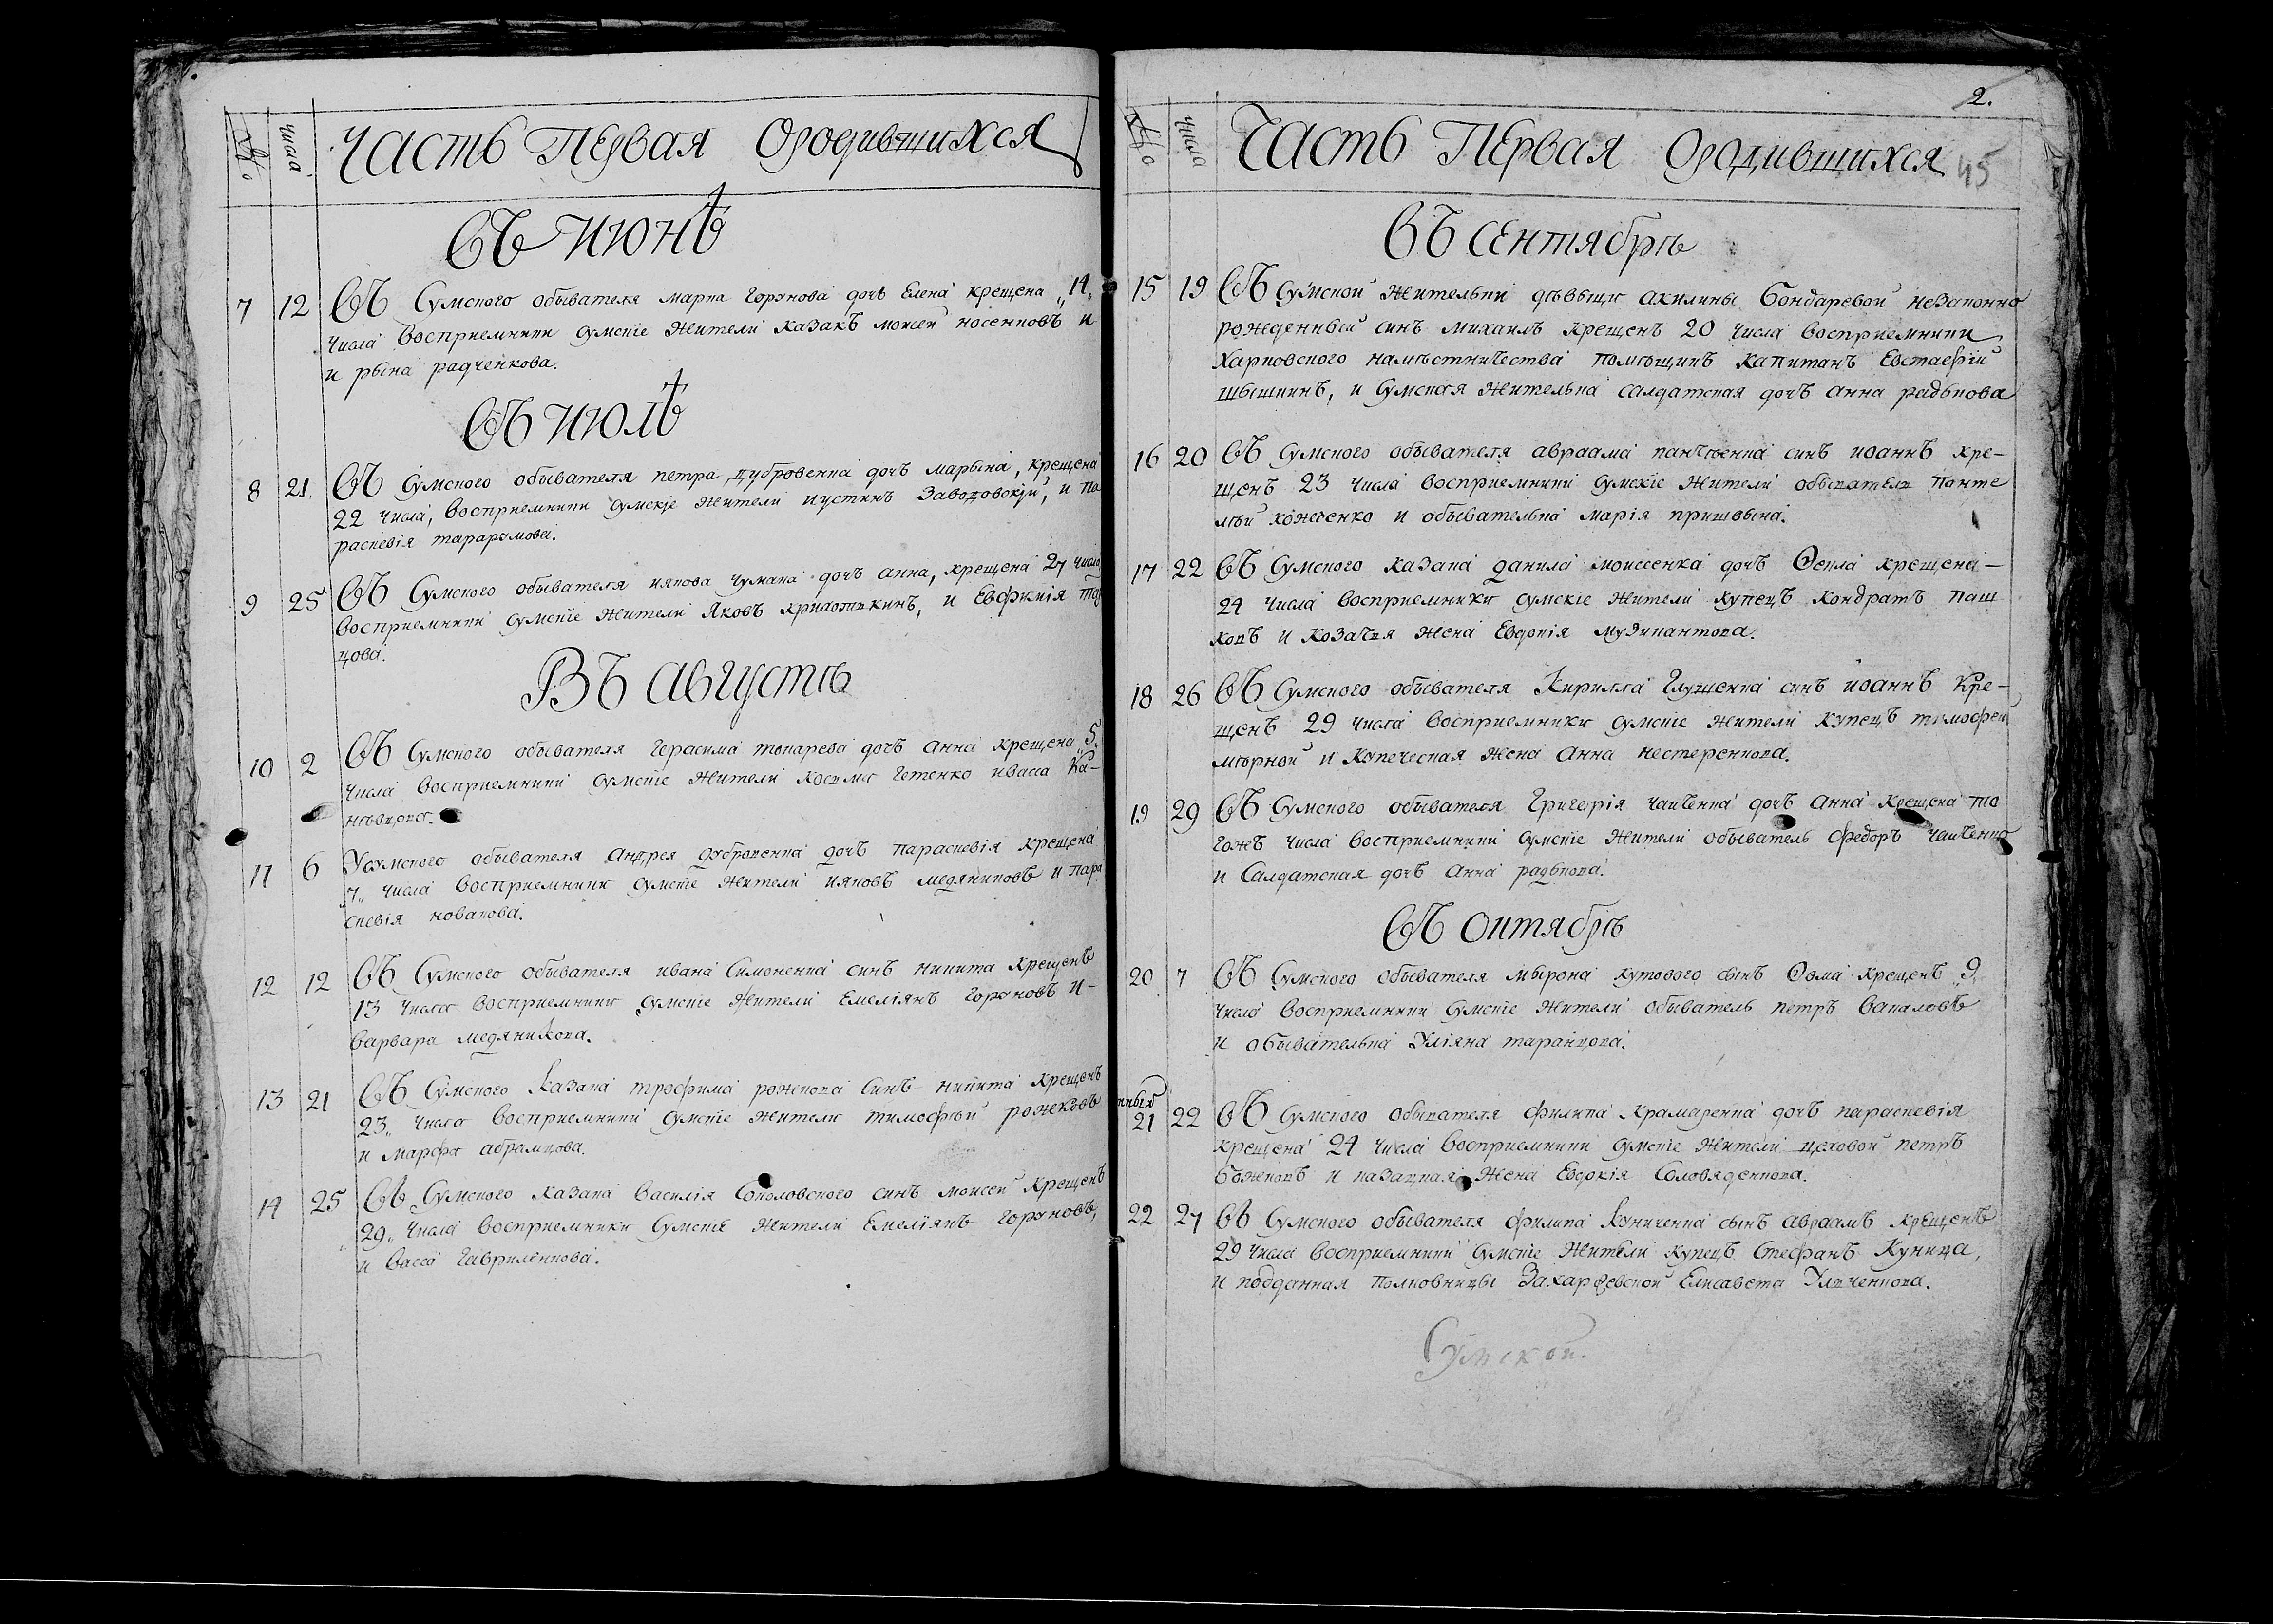 № числа Часть Первая Ородившихся
Въ июнѣ
7 12 Въ Сумского обывателя марка горянова дочь Елена крещена „14„
числа восприемники сумскіе жители казакъ моисей носенковъ и
и рына радченкова.
Въ июлѣ
8 21 Въ Сумского обывателя петра дубровенка дочь марына, крещена
22 числа, восприемники сумскіе жители иустинъ Заводовскій, и па
раскевія тарарѫмова.
9 25 Въ Сумского обывателя иякова чумака дочь анна, крещена 27 числа
восприемники сумскіе жители Яковъ крихоткинъ, и Евфимія
цова.
Въ августѣ
10 2 Въ Сумского обывателя герасима токарева дочь анна крещена „5„
числа восприемники сумскіе жители косма гетенко иваса Ка-
11 6 Усумского обывателя андрея дубровенка дочь параскевія крещена
„7„ числа восприемники сумскіе жители ияковъ медяниковъ и пара
скевія новакова.
12 12 Въ Сумского обывателя ивана Симоненка синъ никита крещенъ
13 числа восприемники сумскіе жители Емеліянъ горяновъ и-
варвара медяникова.
13 21 Въ Сумского казака трофима рожкова синъ никита крещенъ
23„ числа восприемники сумскіе жители тимофѣй рожковъ
и марфа абрамцова.
14 25 Въ Сумского казака василія Соколовского синъ моисей крещенъ
„29„ числа восприемники Сумскіе жители Емеліянъ горяновъ,
и васса гавриленкова.
2.
№ числа Часть Первая Ородившихся 45
Въ Сентябрѣ
15 19 Въ Сумской жителки дѣвыци акилины бондаревой незаконно
рожденный синъ михаилъ крещенъ 20 числа восприемники
Харковского намѣстничества помѣщикъ капитанъ Евстафій
шышкинъ, и Сумская жителка салдатская дочь анна радькова
16 20 Въ Сумского обывателя авраама панченка синъ иоаннъ кре-
щенъ 23 числа восприемники Сумскіе жители обыватель панте
лѣй коженко и обывателка марія пришвына.
17 22 Въ Сумского казака данила моисеенка дочь Ѳекла крещена-
24 числа восприемники сумскіе жители купецъ кондратъ паш
ковъ и козачья жена Евдокія музикантова.
18 26 Въ Сумского обывателя Кирилла глущенка синъ иоаннъ Кре-
щенъ 29 числа восприемники сумскіе жители купецъ тимофей
мѣрной и купеческая жена анна нестеренкова.
19 29 Въ Сумского обывателя Григорія чайченка дочь анна крещена то
гожъ числа восприемники сумскіе жители обыватель федоръ чайченко
и Салдатская дочь анна радькова.
Въ Октябрѣ
20 7 Въ Сумского обывателя мырона кутового сынъ Ѳома крещенъ „9„
числа восприемники Сумскіе жители обыватель петръ вакаловъ
и обывателка Уліяна таранцова.
21 22 Въ Сумского обывателя филипа крамаренка дочь параскевія
крещена 24 числа восприемники сумскіе жители цеховой петръ
божковъ и казацкая жена Евдокія Соловяденкова.
22 27 Въ Сумского обывателя филипа куниченка сынъ авраамъ крещенъ
29 числа восприемники Сумскіе жители купецъ Стефанъ Куница,
и подданная полковницы Захаржевской Елисавета Уличенкова.
Сумской.